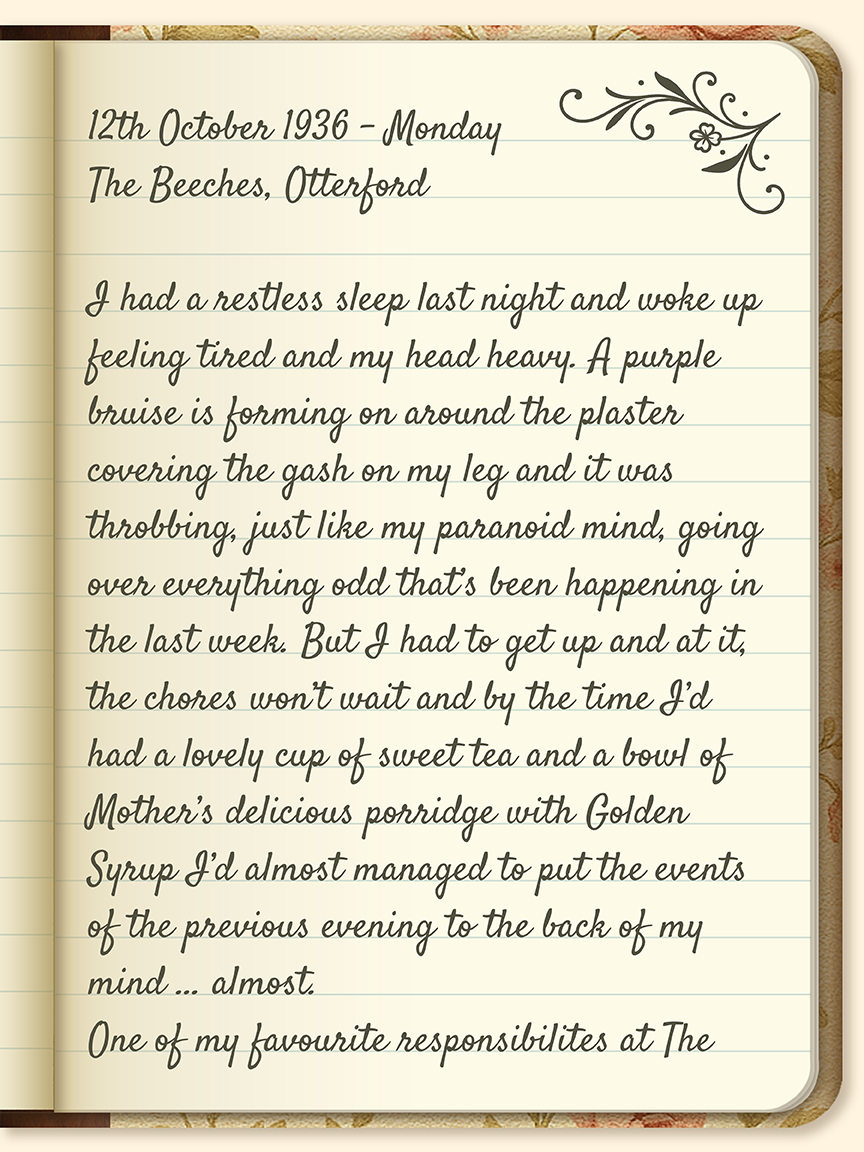 12th October 1936 – Monday
The Beeches, Otterford
I had a restless sleep last night and woke up
feeling tired and my head heavy. A purple
bruise is forming on around the plaster
covering the gash on my leg and it was
throbbing, just like my paranoid mind, going
over everything odd that's been happening in
the last week. But I had to get up and at it,
the chores won't wait and by the time I'd
had a lovely cup of sweet tea and a bowl of
Mother's delicious porridge with Golden
Syrup I'd almost managed to put the events
of the previous evening to the back of my
mind ... almost.
One of my favourite responsibilites at The